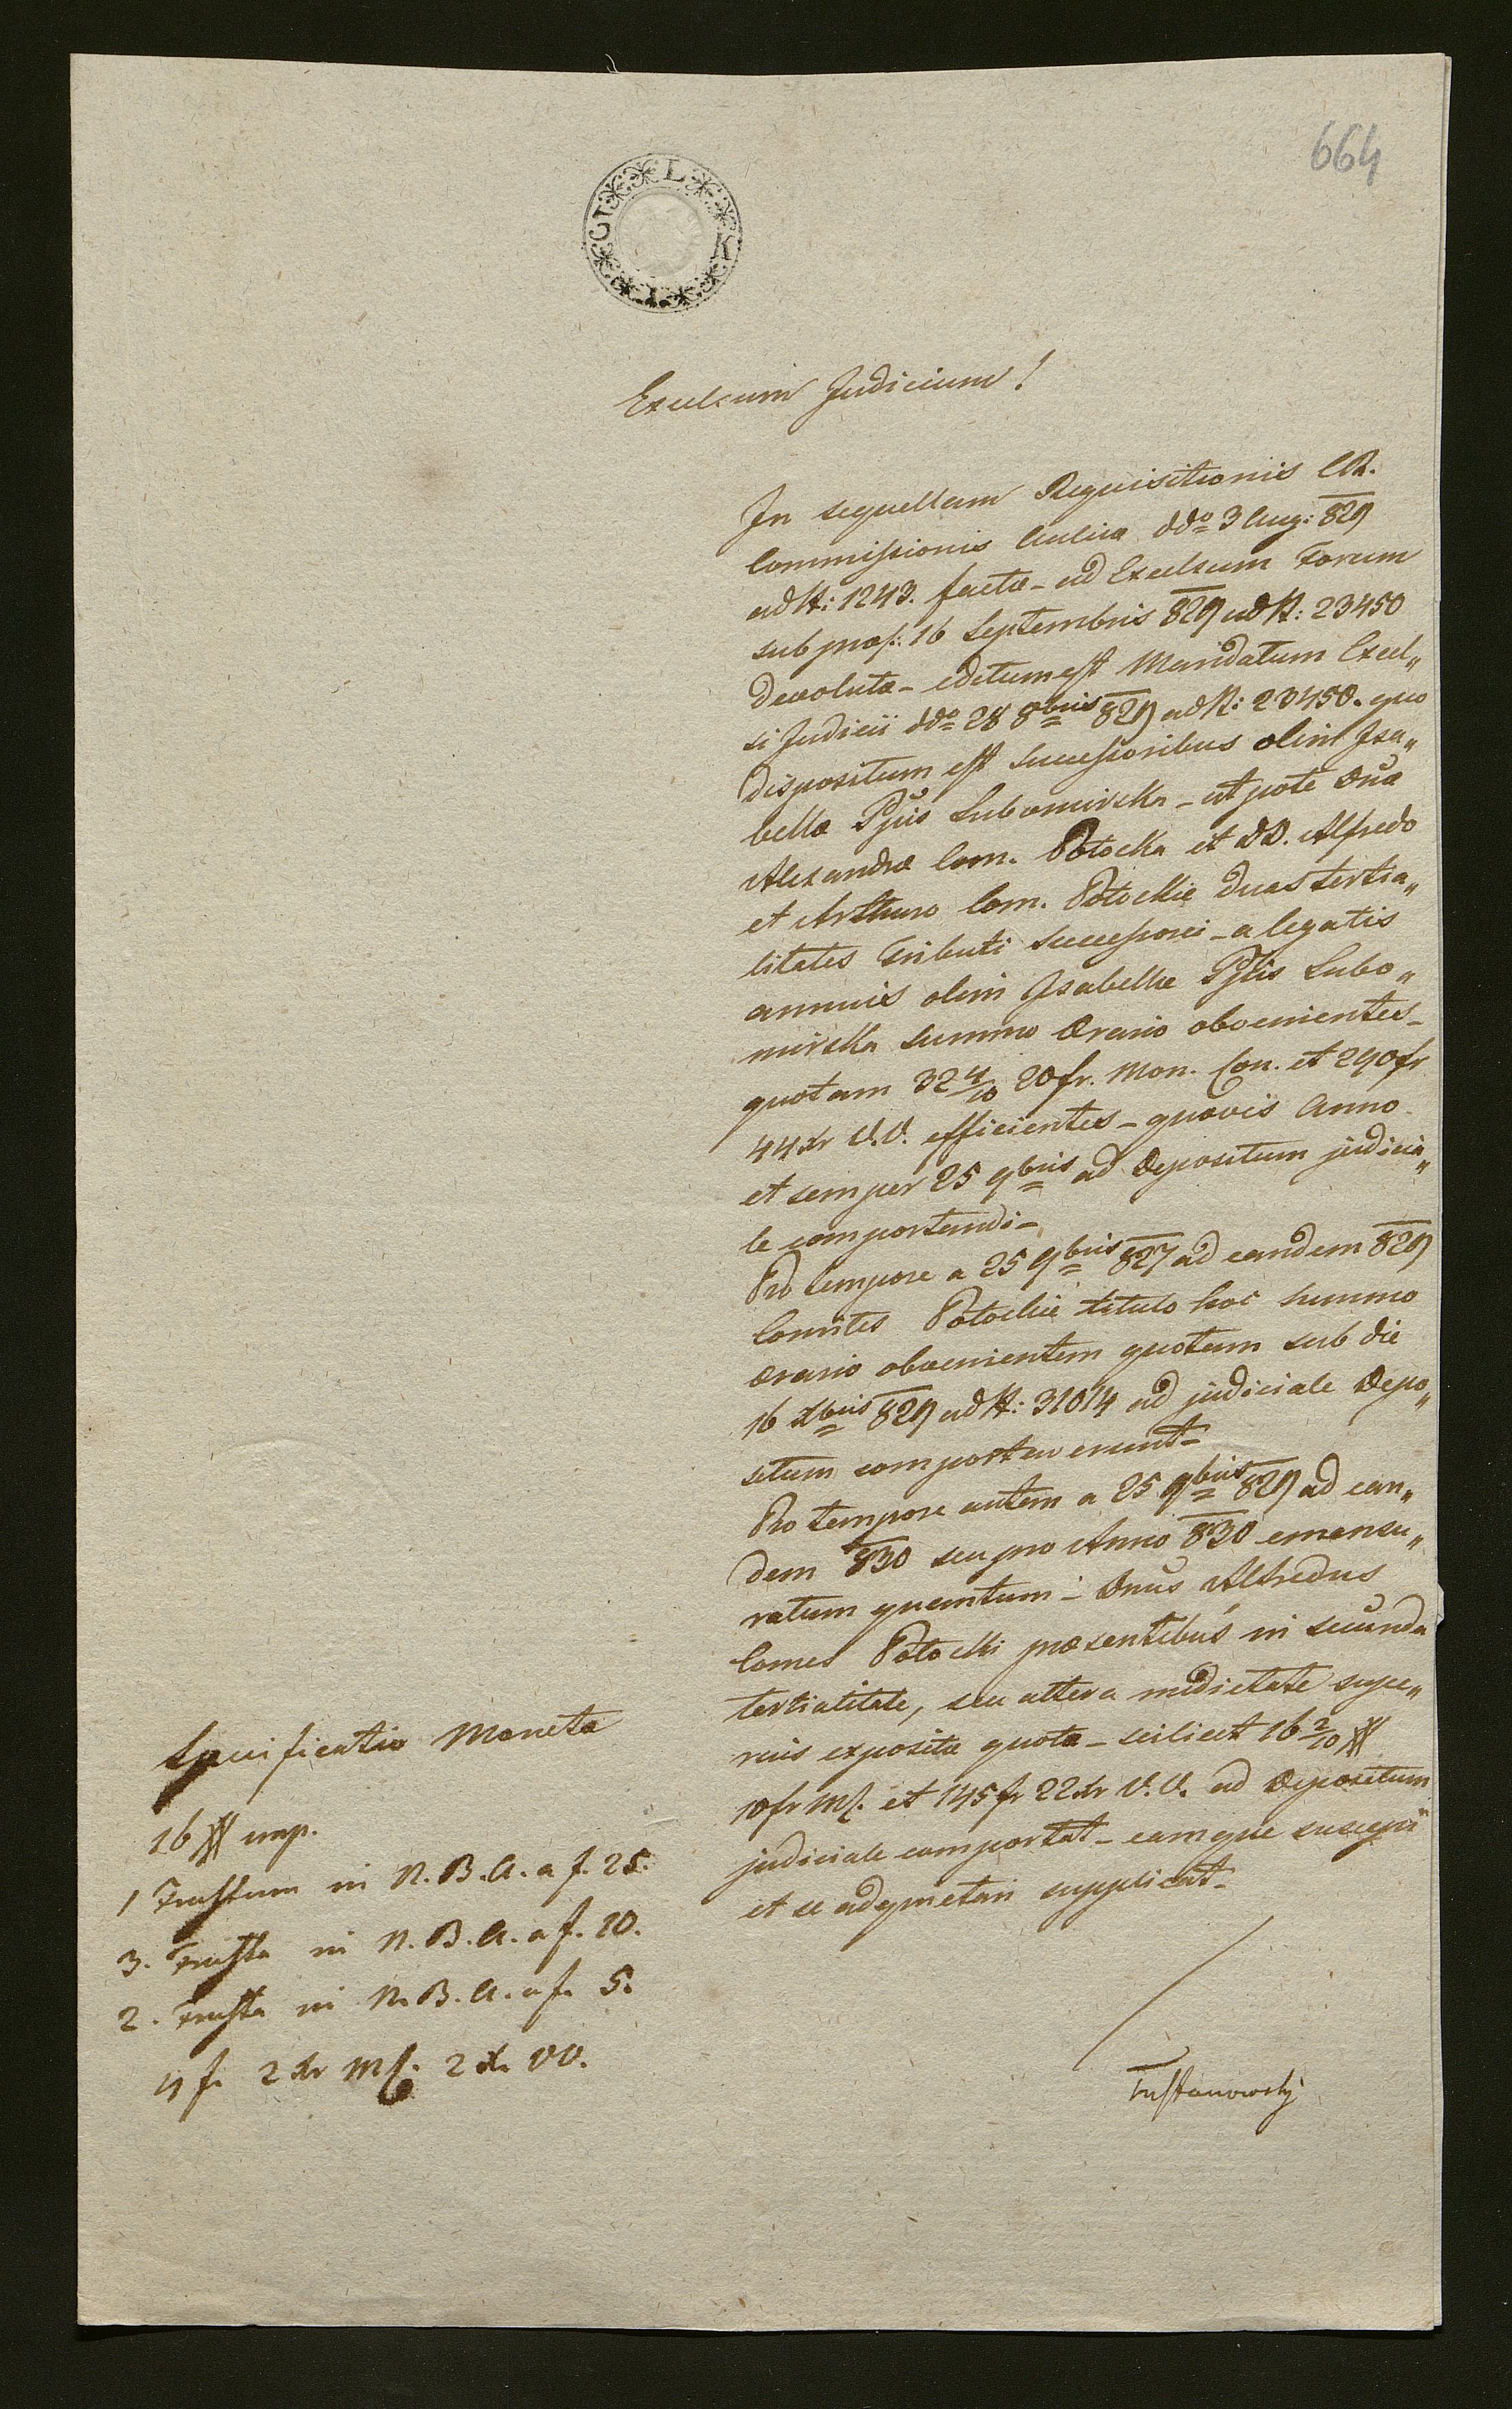 664
L K I G
Excelsum Judicium!
In sequellam Requisitionis CR.
Commissionis Aulica ddo 3 Aug: 829
ad N: 1243. factæ - ad Excelsum Forum
sub præs: 16 Septembris 829 ad N: 23450
devolutæ - editum est Mandatum Excel„
si Judicii ddo 28 8bris 829 ad N: 23450. quo
dispositum est Successoribus olim Isa„
bellæ Ppis Lubomirska - ut pote Dnæ
Alexandræ Com. Potocka et DD. Alfredo
et Arthuro Com. Potockie duas tertia„
litates Tributi successorii - a legatis
annuis olim Isabellæ Ppis Lubo„
mirska summo Ærario obvenientes -
quotam 32 4/10 20 fr. Mon. Con. et 290 fr
44 xr V.V. efficientes - quovis Anno
et semper 25 9bris ad Depositum judicia„
le comportandi -
Pro tempore a 25 9bris 827 ad eandem 829
Comites Potockie titulo hoc summo
Ærario obvenientem quotam sub die
16 Xbris 829 ad N: 31014 ad judiciale Depo„
situm comportaverunt -
Pro tempore autem a 25 9bris 829 ad ean„
dem 830 seu pro Anno 830 emensu„
ratum quantum - Dnus Alfredus
Comes Potocki præsentibus in secunda
tertialitate, seu altera medietate supe„
rius expositæ quotæ - scilicet 16 2/10 #
10 fr M. et 145 fr 22 xr V.V. ad Depositum
judiciale comportat - eamque suscipi
et se adquietari supplicat -
Tustanowsky
Specificatio Moneta
16 # imp.
1 Frustum in N. B. A. a f. 25.
3. Frusta in N. B. A. a f. 20.
2. Frusta in N. B. A. a f. 5.
2 xr 2 x VV.